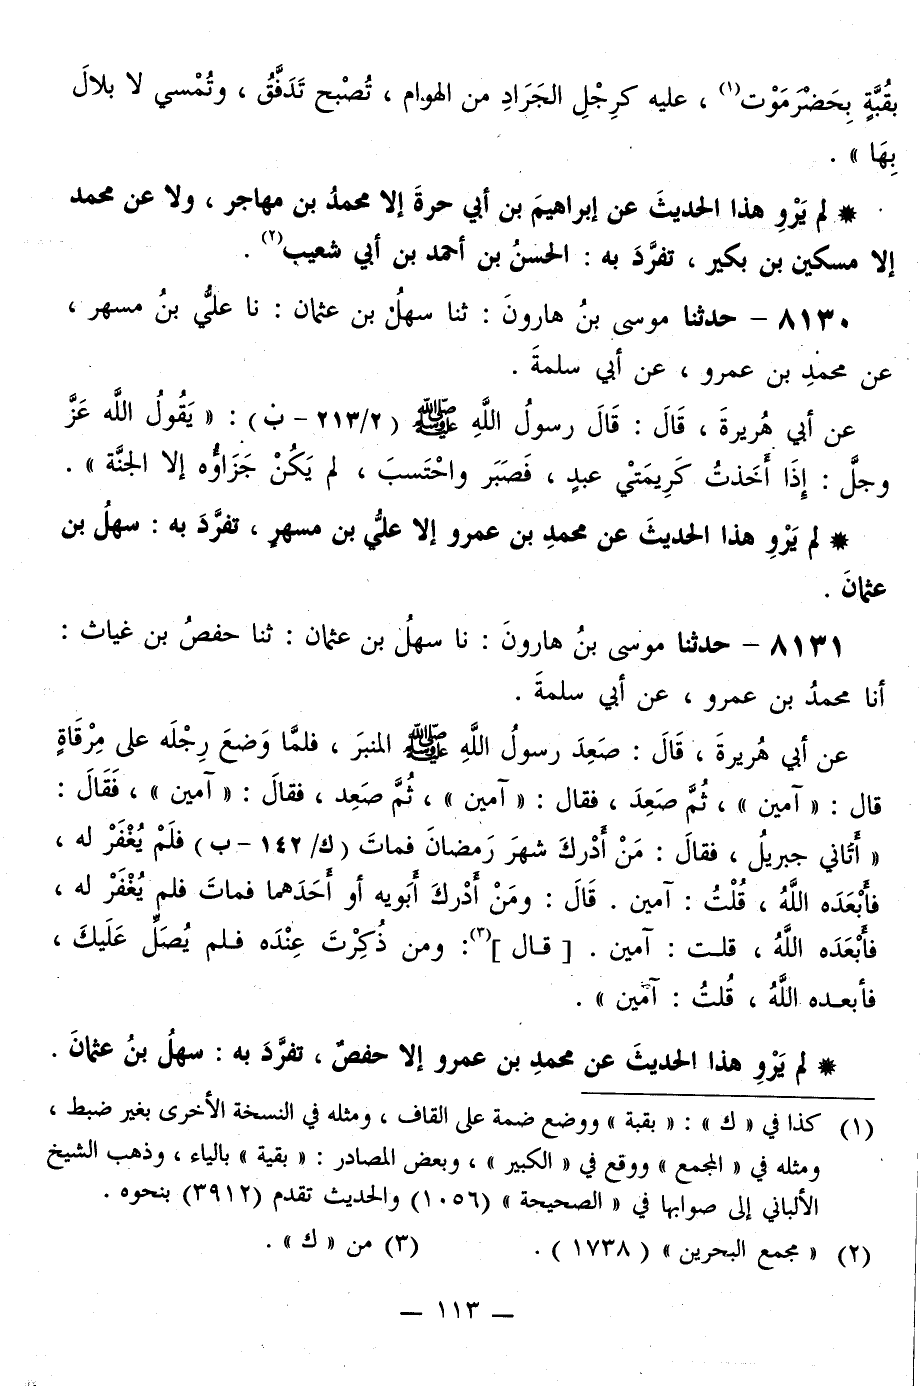 بقُبَّةٍ بِحَضْرَمَوْت(١) ، عليه كرِجْلِ الجَرَادِ من الهوام ، تُصْبح تَدَفَّقُ ، وتُمْسي لا بلالَ
بِهَا » .
* لم يَرْوِ هذا الحديثَ عن إبراهيمَ بن أبي حرةَ إلا محمدُ بن مهاجر ، ولا عن محمد
إلا مسكين بن بكير ، تفرَّدَ به : الحسنُ بن أحمد بن أبي شعيب(٢) .
٨١٣٠ – حدثنا موسى بنُ هارونَ : ثنا سهلُ بن عثمان : نا عليُّ بنُ مسهر ،
عن محمدِ بن عمرو ، عن أبي سلمةَ .
عن أبي هُريرةَ ، قَالَ : قَالَ رسولُ اللَّهِ ﷺ ( ٢١٣/٢ – ن ) : « يَقُولُ اللَّه عَزَّ
وجلَّ : إِذَا أَخَذتُ كَرِيمَتيْ عبدٍ ، فَصَبَر واحْتَسبَ ، لم يَكُنْ جَزَاؤُه إلا الجنَّة » .
* لم يَرْوِ هذا الحديثَ عن محمدِ بن عمرو إلا عليُّ بن مسهرٍ ، تفرَّدَ به : سهلُ بن
عثمانَ .
٨١٣١ – حدثنا موسى بنُ هارونَ : نا سهلُ بن عثمان : ثنا حفصُ بن غياث :
أنا محمدُ بن عمرو ، عن أبي سلمةَ .
عن أبي هُريرةَ ، قَالَ : صَعِدَ رسولُ اللَّهِ ﷺ المنبرَ ، فلمَّا وَضعَ رِجْلَه على مِرْقَاةٍ
قال : « آمين » ، ثُمَّ صَعِدَ ، فقال : « آمين » ، ثُمَّ صَعِد ، فقالَ : « آمين » ، فَقَالَ :
« أَتَاني جبريلُ ، فقالَ : مَنْ أَدْركَ شهرَ رَمضانَ فماتَ ( ك/ ١٤٢ – ب ) فلَمْ يُغْفَرْ له ،
فأَبْعَدَه اللَّهُ ، قُلْتُ : آمين . قَالَ : ومَنْ أَدْركَ أَبَويه أو أَحَدَهما فماتَ فلم يُغْفَرْ له ،
فأَبْعَدَه اللَّهُ ، قلت : آمين . [ قال ](٣): ومن ذُكِرْتَ عِنْدَه فلم يُصَلِّ عَلَيكَ ،
فأبعده اللَّهُ ، قُلتُ : آمين » .
* لم يَرْوِ هذا الحديثَ عن محمدِ بن عمرو إلا حفصٌ ، تفرَّدَ به : سهلُ بنُ عثمانَ .
(١) كذا في « ك » : « بقبة » ووضع ضمة على القاف ، ومثله في النسخة الأخرى بغير ضبط ،
ومثله في « المجمع » ووقع في « الكبير » ، وبعض المصادر : « بقية » بالياء ، وذهب الشيخ
الألباني إلى صوابها في « الصحيحة » (١٠٥٦) والحديث تقدم (٣٩١٢) بنحوه .
(٢) « مجمع البحرين » ( ١٧٣٨ ) . (٣) من « ك » .
– ١١٣ –